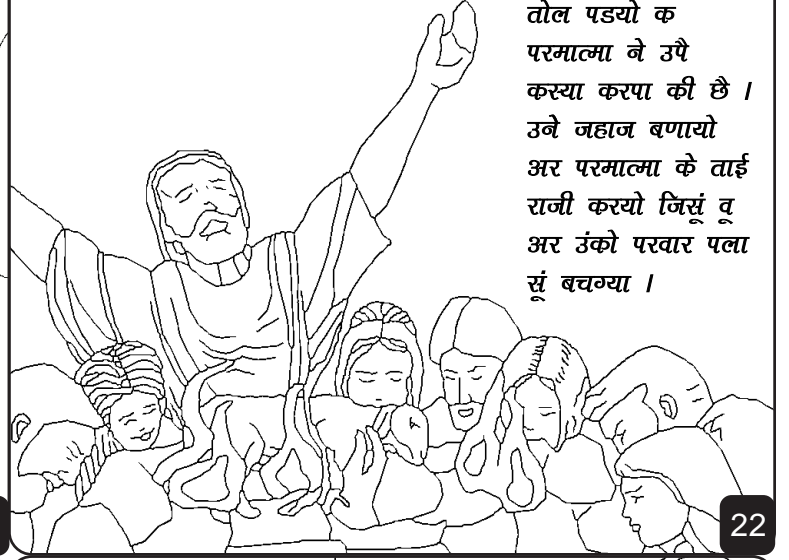 तोल पडयो क
परमात्मा ने उपै
कस्या करपा की छै ।
उने जहाज बणायो
अर परमात्मा के ताई
राजी करयो जिसूं वू
अर उंको परवार पला
सूं बचग्या ।
22